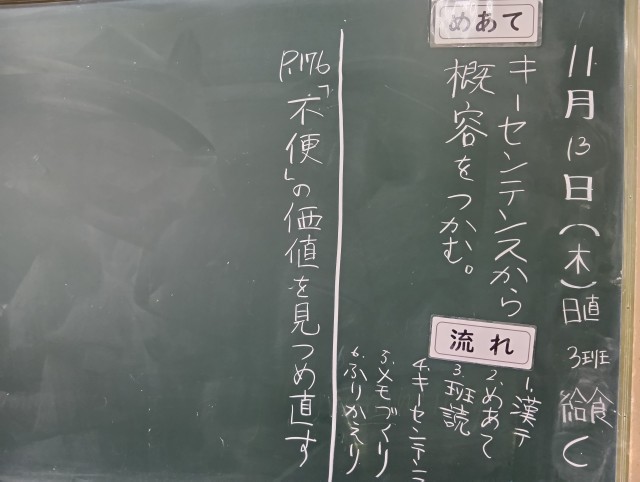 11月13日(木)日直 3班 給食 C
めあて
キーセンテンスから
概容をつかむ。
流れ
1.漢テ
2.めあて
3.班読
4.キーセンテン
5.メモづくり
6.ふりかえり
P.176「不便」の価値を見つめ直す